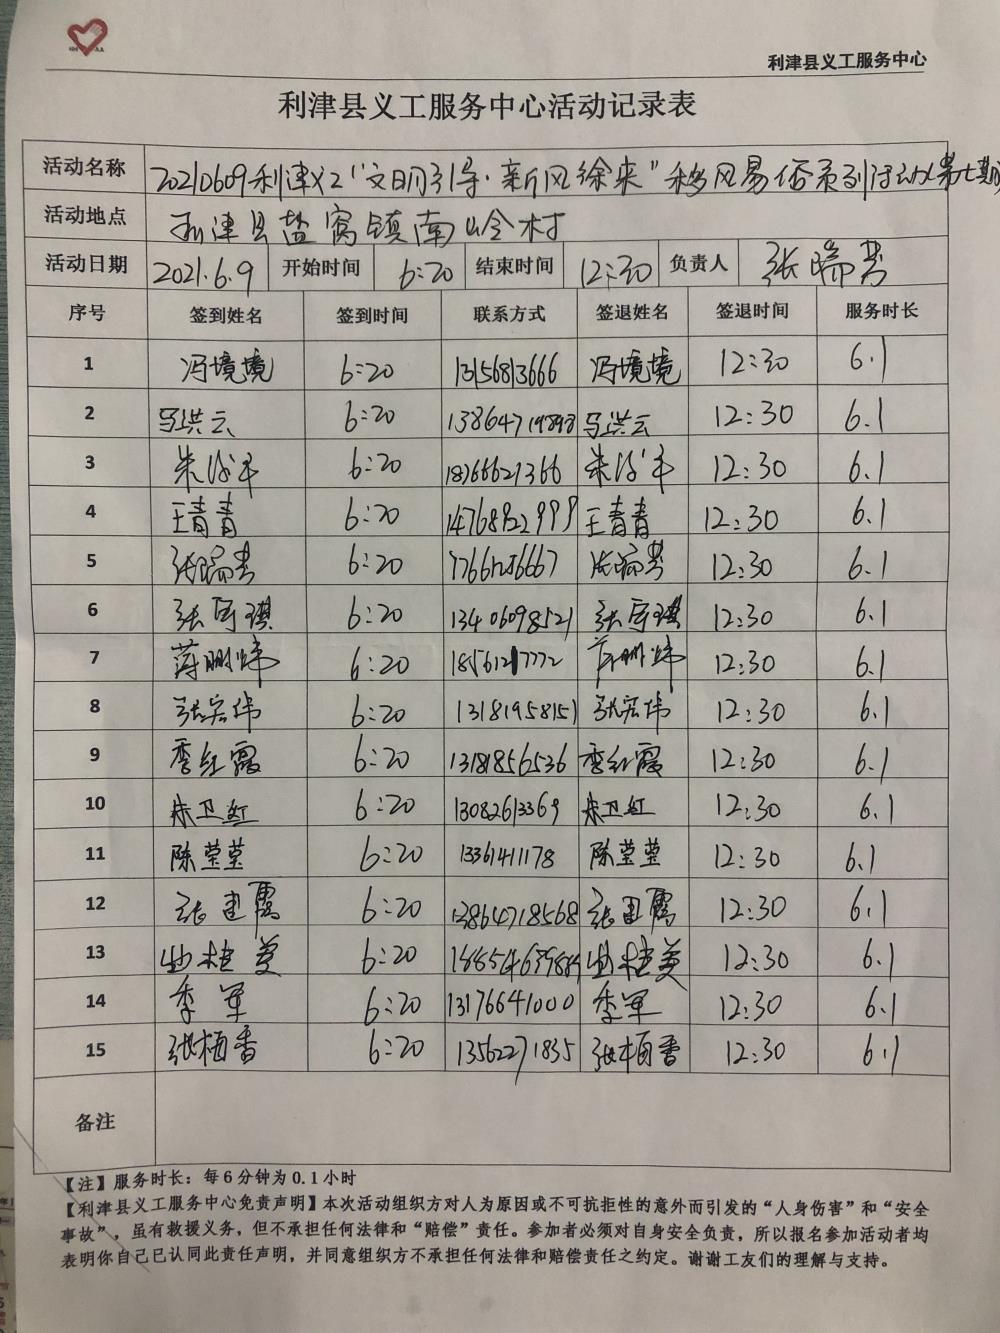 利津县义工服务中心
利津县义工服务中心活动记录表
活动名称 20210609利津义工“文明引导·新风徐来”移风易俗系列活动(第七期)
活动地点 利津县盐窝镇南岭村
活动日期 2021.6.9 开始时间 6:20 结束时间 12:30 负责人 张瑞芳
序号 签到姓名 签到时间 联系方式 签退姓名 签退时间 服务时长
1 冯境境 6:20 13156813666 冯境境 12:30 6.1
2 马洪云 6:20 马洪云 12:30 6.1
3 6:20 18766621366 12:30 6.1
4 王青青 6:20 14768922999 王青青 12:30 6.1
5 张瑞芳 6:20 张瑞芳 12:30 6.1
6 6:20 13406098521 12:30 6.1
7 6:20 12:30 6.1
8 张宏伟 6:20 13181958151 张宏伟 12:30 6.1
9 季红霞 6:20 13181856536 季红霞 12:30 6.1
10 朱卫红 6:20 13082613369 朱卫红 12:30 6.1
11 陈莹莹 6:20 13361411178 陈莹莹 12:30 6.1
12 张建霞 6:20 13864718568 张建霞 12:30 6.1
13 6:20 12:30 6.1
14 季军 6:20 13176641000 季军 12:30 6.1
15 6:20 13562271835 12:30 6.1
备注
【注】服务时长：每6分钟为0.1小时
【利津县义工服务中心免责声明】本次活动组织方对人为原因或不可抗拒性的意外而引发的“人身伤害”和“安全
事故”，虽有救援义务，但不承担任何法律和“赔偿”责任。参加者必须对自身安全负责，所以报名参加活动者均
表明你自己已认同此责任声明，并同意组织方不承担任何法律和赔偿责任之约定。谢谢工友们的理解与支持。